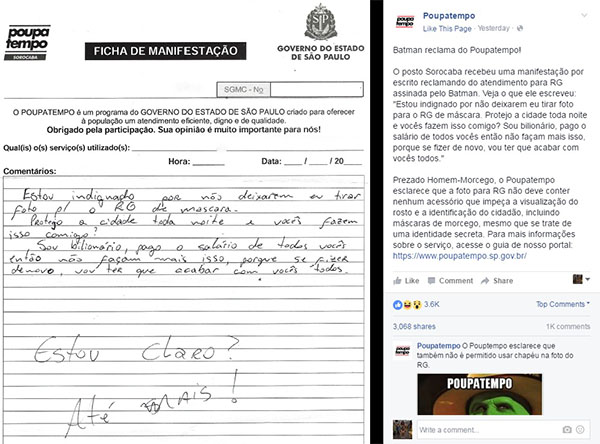 poupa
tempo
SOROCABA
FICHA DE MANIFESTAÇÃO
GOVERNO DO ESTADO
DE SÃO PAULO
SGMC - No
O POUPATEMPO é um programa do GOVERNO DO ESTADO DE SÃO PAULO criado para oferecer
à população um atendimento eficiente, digno e de qualidade.
Obrigado pela participação. Sua opinião é muito importante para nós!
Qual(is) o(s) serviço(s) utilizado(s):
Hora: Data: / / 20
Comentários:
Estou indignado por não deixarem eu tirar
foto p/ o RG de mascara.
Protego a cidade toda noite e vocês fazem
isso comigo?
Sou bilionário, pago o salário de todos vocês
então não façam mais isso, porque se fizer
denovo, vou ter que acabar com vocês todos.
Estou Claro?
Até MAIS!
poupa
tempo
Poupatempo
Like This Page · Yesterday ·
Batman reclama do Poupatempo!
O posto Sorocaba recebeu uma manifestação por
escrito reclamando do atendimento para RG
assinada pelo Batman. Veja o que ele escreveu:
"Estou indignado por não deixarem eu tirar foto
para o RG de máscara. Protejo a cidade toda noite
e vocês fazem isso comigo? Sou bilionário, pago o
salário de todos vocês então não façam mais isso,
porque se fizer de novo, vou ter que acabar com
vocês todos."
Prezado Homem-Morcego, o Poupatempo
esclarece que a foto para RG não deve conter
nenhum acessório que impeça a visualização do
rosto e a identificação do cidadão, incluindo
máscaras de morcego, mesmo que se trate de
uma identidade secreta. Para mais informações
sobre o serviço, acesse o guia de nosso portal:
https://www.poupatempo.sp.gov.br/
Like Comment Share
3.6K Top Comments
3,068 shares 1K comments
poupa
tempo
Poupatempo O Pouptempo esclarece que
também não é permitido usar chapéu na foto do
RG.
POUPATEMPO
Write a comment...